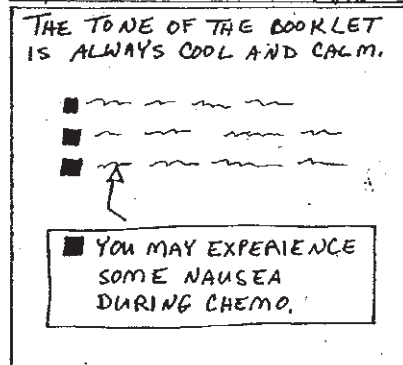 THE TONE OF THE BOOKLET
IS ALWAYS COOL AND CALM.
YOU MAY EXPERIENCE
SOME NAUSEA
DURING CHEMO.